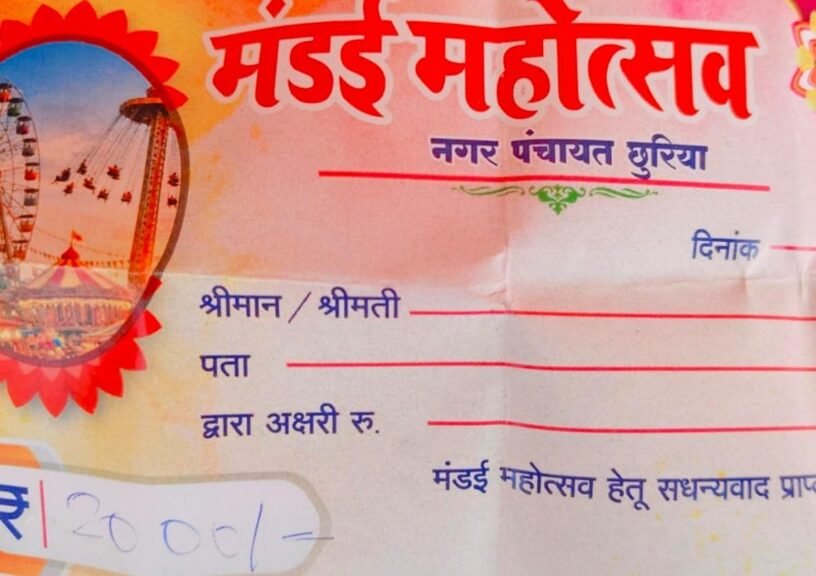 मंडई महोत्सव
नगर पंचायत छुरिया
दिनांक
श्रीमान / श्रीमती
पता
द्वारा अक्षरी रु.
मंडई महोत्सव हेतू सधन्यवाद
₹ 2000/-